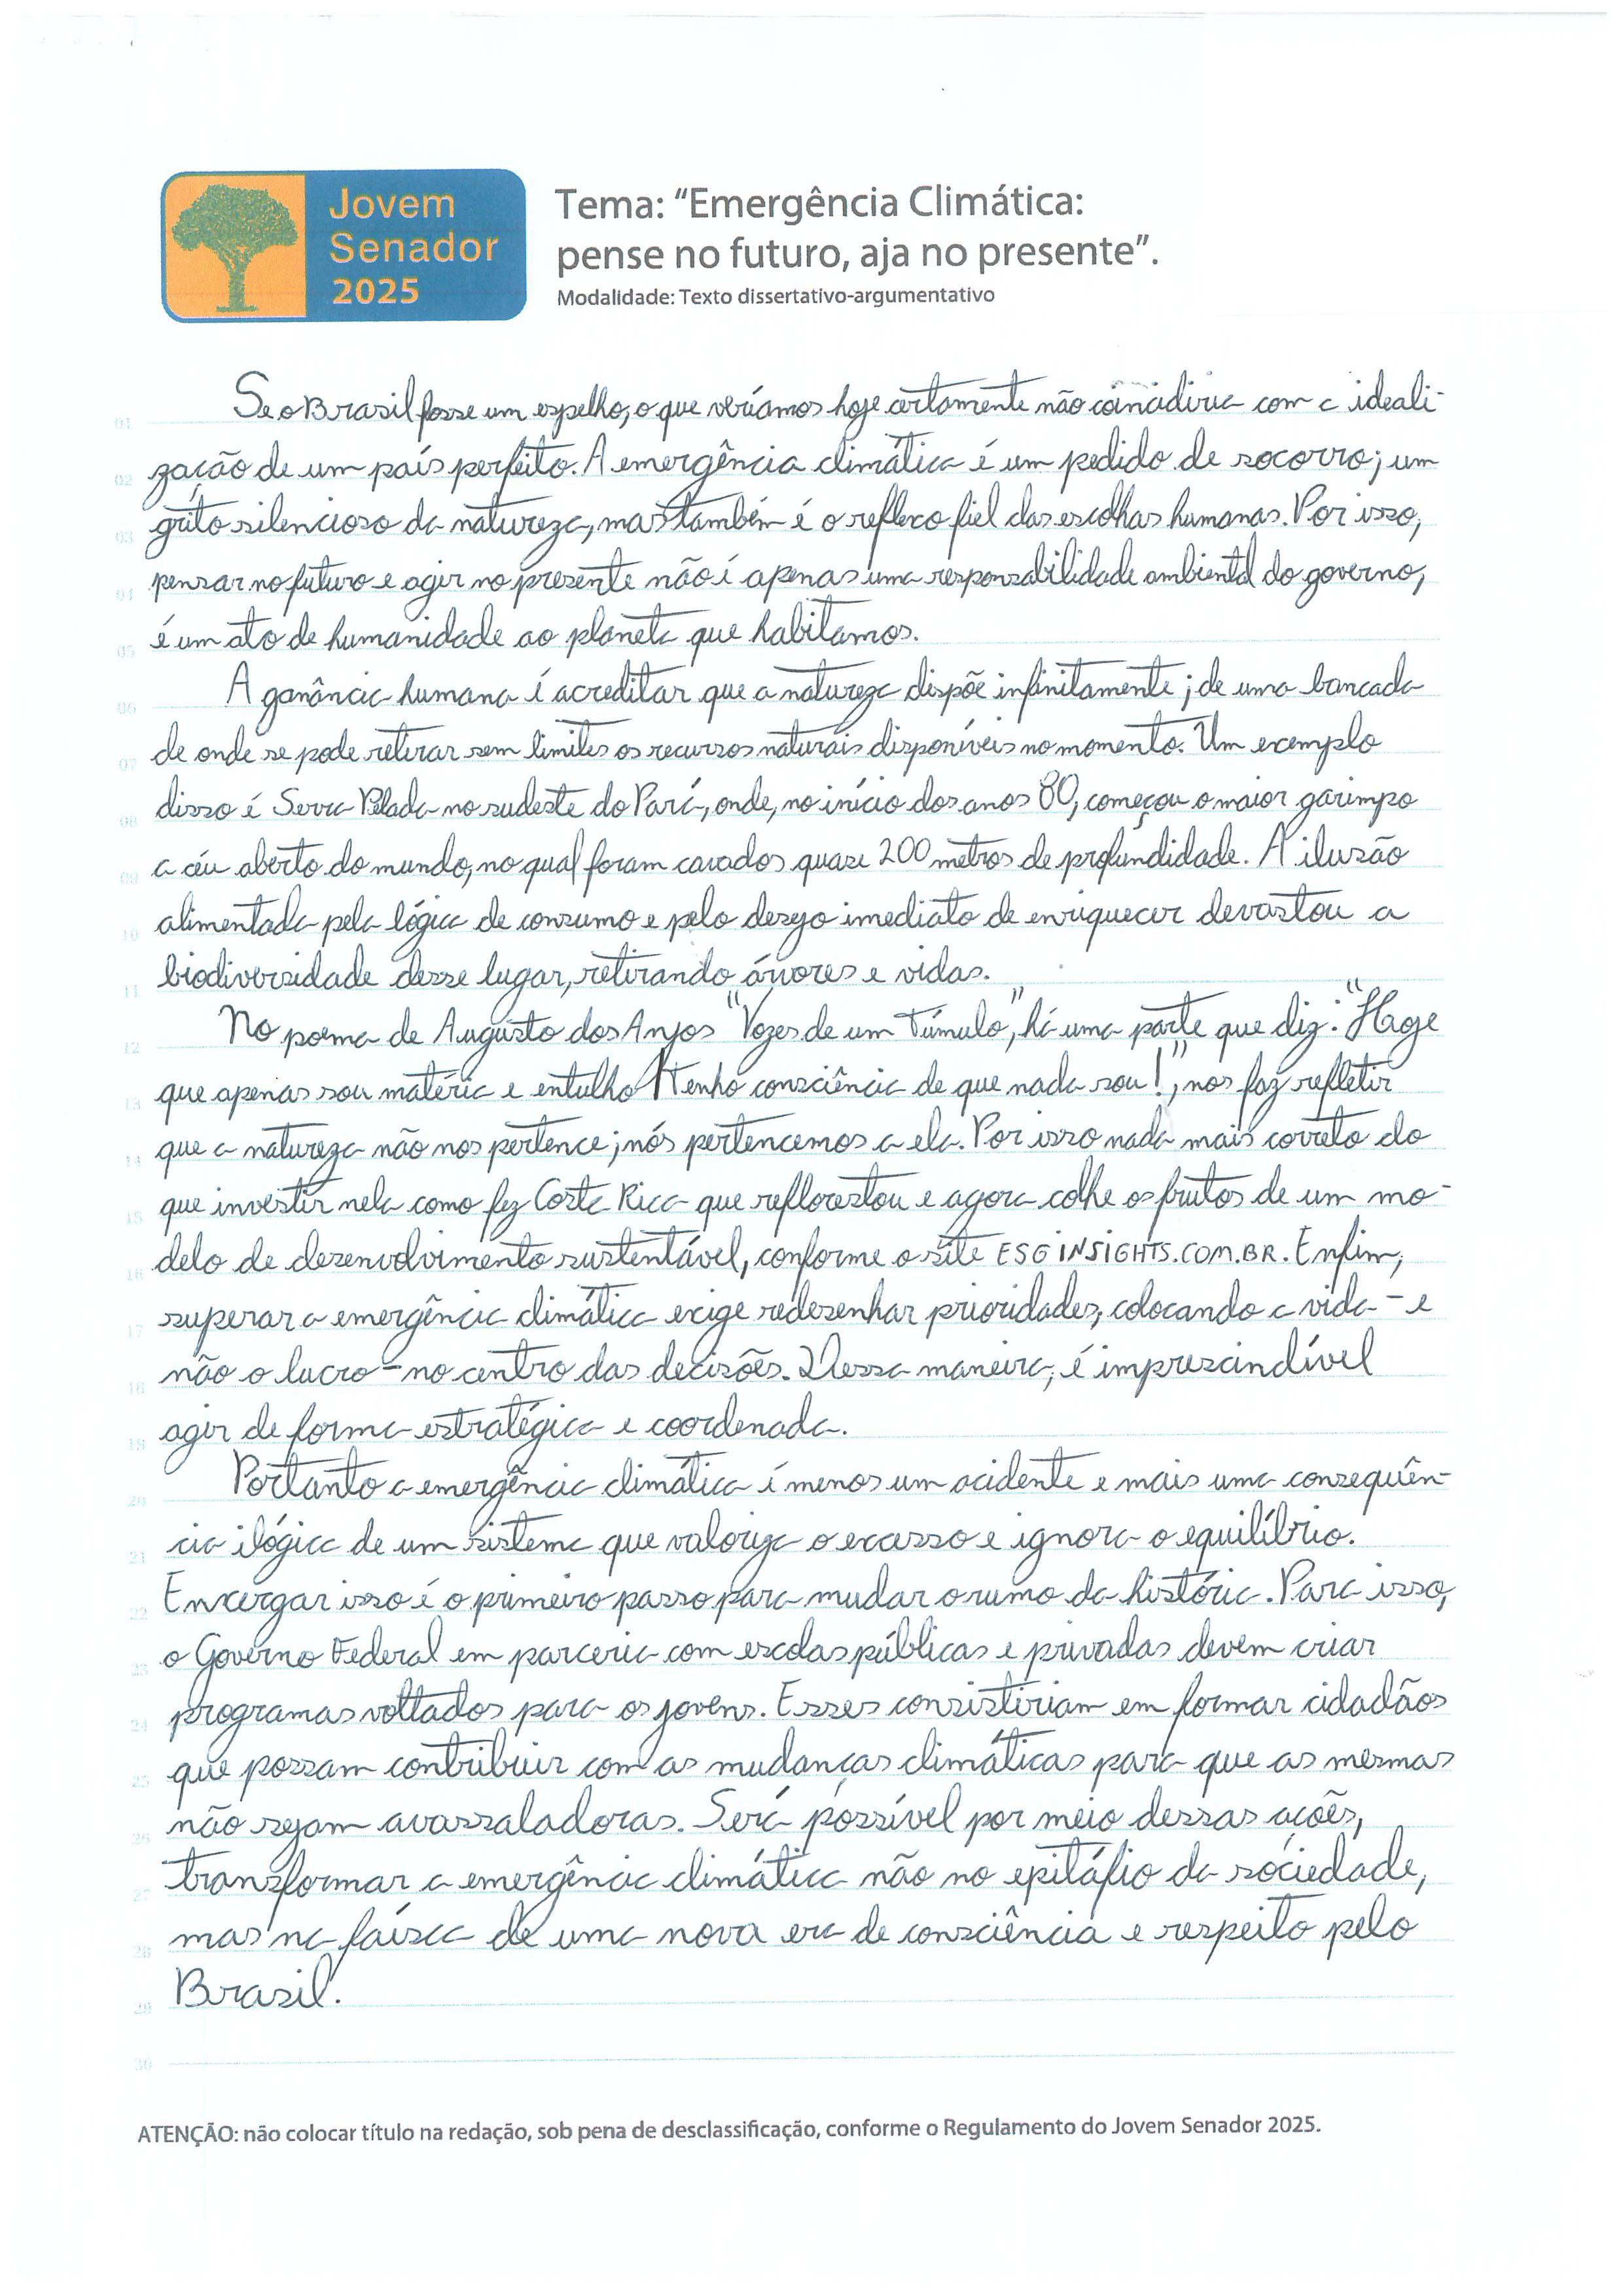 Jovem
Senador
2025
Tema: “Emergência Climática:
pense no futuro, aja no presente”.
Modalidade: Texto dissertativo-argumentativo
01 Se o Brasil fosse um espelho, o que veríamos hoje certamente não coincidiria com a ideali-
02 zação de um país perfeito. A emergência climática é um pedido de socorro; um
03 grito silencioso da natureza, mas também é o reflexo fiel das escolhas humanas. Por isso,
04 pensar no futuro e agir no presente não é apenas uma responsabilidade ambiental do governo,
05 é um ato de humanidade ao planeta que habitamos.
06 A ganância humana é acreditar que a natureza dispõe infinitamente; de uma bancada
07 de onde se pode retirar sem limites os recursos naturais disponíveis no momento. Um exemplo
08 disso é Serra Pelada no sudeste do Pará, onde, no início dos anos 80, começou o maior garimpo
09 a céu aberto do mundo, no qual foram cavados quase 200 metros de profundidade. A ilusão
10 alimentada pela lógica de consumo e pelo desejo imediato de enriquecer devastou a
11 biodiversidade desse lugar, retirando árvores e vidas.
12 No poema de Augusto dos Anjos "Vozes de um Túmulo", há uma parte que diz: "Hoje
13 que apenas sou matéria e entulho / tenho consciência de que nada sou!", nos faz refletir
14 que a natureza não nos pertence; nós pertencemos a ela. Por isso nada mais correto do
15 que investir nela como fez Costa Rica que reflorestou e agora colhe os frutos de um mo-
16 delo de desenvolvimento sustentável, conforme o site ESGINSIGHTS.COM.BR. Enfim,
17 superar a emergência climática exige redesenhar prioridades, colocando a vida - e
18 não o lucro - no centro das decisões. Dessa maneira, é imprescindível
19 agir de forma estratégica e coordenada.
20 Portanto a emergência climática é menos um acidente e mais uma consequên-
21 cia ilógica de um sistema que valoriza o excesso e ignora o equilíbrio.
22 Enxergar isso é o primeiro passo para mudar o rumo da história. Para isso,
23 o Governo Federal em parceria com escolas públicas e privadas devem criar
24 programas voltados para os jovens. Esses consistiriam em formar cidadãos
25 que possam contribuir com as mudanças climáticas para que as mesmas
26 não sejam avassaladoras. Será possível por meio dessas ações,
27 transformar a emergência climática não no epitáfio da sociedade,
28 mas na faísca de uma nova era de consciência e respeito pelo
29 Brasil.
30
ATENÇÃO: não colocar título na redação, sob pena de desclassificação, conforme o Regulamento do Jovem Senador 2025.